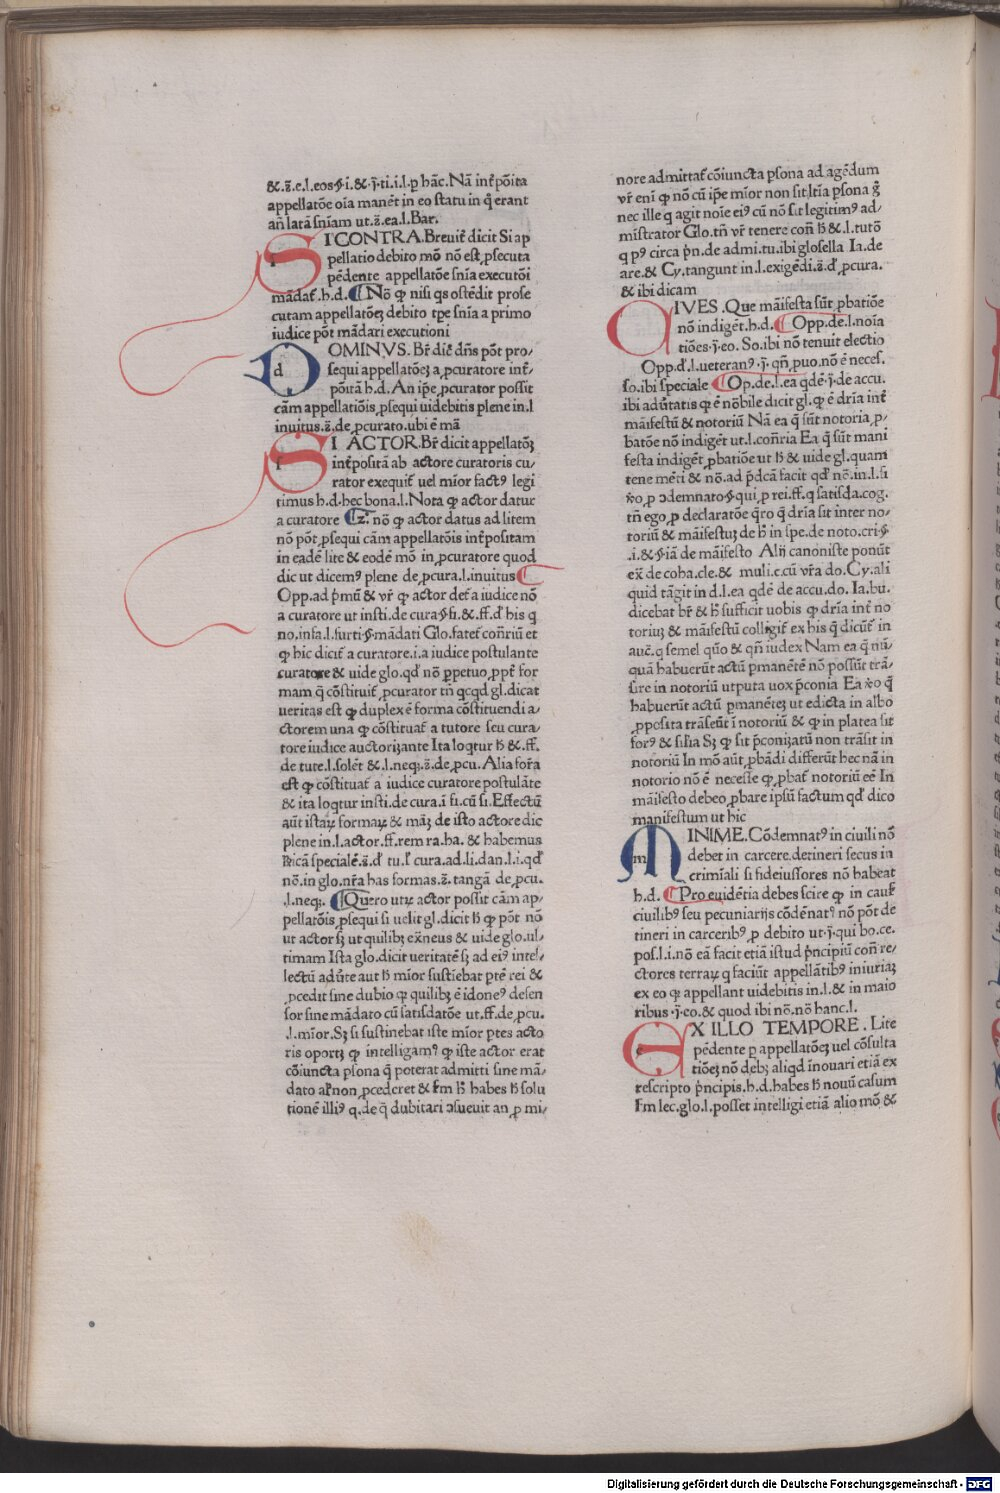 &.s̄.e.l.eos.§.i.&.j̄.ti.i.l.p̱ hāc.Nā int̄pōita
appellatōe oīa manēt in eo statu in q̄ erant
an̄ latā snīam ut.s̄.ea.l.Bar.
SI CONTRA.Breuit̄ dicit Si ap
pellatio debito mō nō est ꝓsecuta
pēdente appellatōe snīa executōi
mādat̄.h.d. Nō ꝙ nisi qs ostēdit prose
cutam appellatōeꝫ debito tꝑe snīa a primo
iudice pōt mādari executioni
DOMINVS. Br̄ dic̄ dn̄s pōt pro/
sequi appellatōeꝫ a ꝓcuratore int̄/
pōitā h.d. An iꝑe ꝓcurator possit
cām appellatiōis ꝓsequi uidebitis plene in.l
inuitus.s̄.de ꝓcurato.ubi ē mā
SI ACTOR.Br̄ dicit appellatōꝫ
int̄positā ab actore curatoris cu/
rator exequit̄ uel mīor factꝰ legi
timus h.d.hec bona.l.Nota ꝙ actor datur
a curatore nō ꝙ actor datus ad litem
nō pōt ꝓsequi cām appellatōis int̄positam
in eadē lite & eodē mō in ꝓcuratore quod
dic ut dicemꝰ plene de ꝓcura.l.inuitus
Opp.ad p̄mū & vr̄ ꝙ actor det̄ a iudice nō
a curatore ut insti.de cura.§.fi.&.ff.d̄ his q
no.infa.l.furti.§.mādati Glo.fatet̄ con̄riū et
ꝙ hic dicit̄ a curatore.i.a iudice postulante
curatore & uide glo.qd̄ nō ꝑpetuo ꝓpt̄ for
mam q̄ cōstituit̄ ꝓcurator tn̄ qcqd gl.dicat
ueritas est ꝙ duplex ē forma cōstituendi a/
ctorem una ꝙ cōstituat̄ a tutore seu cura/
tore iudice auctorizante Ita loqtur ħ &.ff.
de tute.l.solēt &.l.neqꝫ.s̄.de ꝓcu. Alia for̄a
est ꝙ cōstituat̄ a iudice curatore postulāte
& ita loqtur insti.de cura.ī fi.cū si. Effectū
aūt istaꝝ formaꝝ & māꝫ de isto actore dic
plene in.l.actor.ff.rem ra.ha. & habemus
specialē.s̄.d̄ tu.l̄ cura.ad.li.dan.l.i.qd̄
nō.in glo.nr̄a has formas.s̄.tangā de ꝓcu.
.l.neqꝫ. Quero utꝝ actor possit cām ap/
pellatōis ꝓsequi si uelit gl.dicit ħ ꝙ pōt nō
ut actor sꝫ ut quilibꝫ ex̄neus & uide glo.ul/
timam Ista glo.dicit ueritatē sꝫ ad eiꝰ intel/
lectū adūte aut ħ mīor sustiebat ꝑtē rei &
ꝓcedit sine dubio ꝙ quilibꝫ ē idoneꝰ defen
sor sine mādato cū satisdatōe ut.ff.de ꝓcu.
.l.mīor.Sꝫ si sustinebat iste mīor ꝑtes acto
ris oportꝫ ꝙ intelligamꝰ ꝙ iste actor erat
cōiuncta ꝑsona q̄ poterat admitti sine mā/
dato al̄ non ꝓcederet & habes ħ solu
tionē illiꝰ q.de q̄ dubitari ↄsueuit an ꝓ mi/
nore admittat̄ cōiuncta ꝑsona ad agēdum
vr̄ enī ꝙ nō cū iꝑe mīor non sit ltīa ꝑsona
nec ille q agit noīe eiꝰ cū nō sit legitimꝰ ad/
mīstrator Glo.tn̄ vr̄ tenere con̄ ħ &.l.tutō
q pꝰ circa pn̄.de admi.tu.ibi glosella Ia.de
are.& Cy.tangunt in.l.exigēdi.s̄.d̄ ꝓcura.
& ibi dicam
CIVES. Que māifesta sūt ꝓbatiōe
nō indigēt.h.d. Opp.de.l.noīa
tiōes.j̄.eo. So.ibi nō tenuit electio
Opp.d̄.l.ueteranꝰ.j̄.qn̄ ꝓuo.nō ē necef.
so.ibi speciale Op.de.l.ea qdē.j̄.de accu.
ibi adūtatis ꝙ ē nōbile dicit gl.ꝙ ē drīa int̄
māifestū & notoriū Nā ea q̄ sūt notoria ꝓ/
batōe nō indigēt ut.l.con̄ria Ea q̄ sūt mani
festa indigēt ꝓbatiōe ut ħ & uide gl.quam
tene mēti & nō.ad p̄dcā facit qd̄ nō.in.l.si
ꝓ ↄdemnato.§.qui ꝓ rei.ff.q satisda.cog.
tn̄ ego ꝓ declaratōe q̄ro q̄ drīa sit inter no/
toriū & māifestuꝫ de ħ in spe.de noto.cri.§.
.i.&.§.iā de māifesto Alij canoniste ponūt
ex̄ de coha.cle.& muli.c.cū vr̄a do.Cy.ali
quid tāgit in d.l.ea qdē de accu.do. Ia.bu.
dicebat br̄ & ħ sufficit uobis ꝙ drīa int̄ no
toriuꝫ & māifestū colligit̄ ex his q̄ dicūt̄ in
auc̄.q semel quō & qn̄ iudex Nam ea q̄ nū/
quā habuerūt actū ꝑmanētē nō possūt trā/
sire in notoriū utputa uox p̄conia Ea q̄
habuerūt actū ꝑmanēteꝫ ut edicta in albo
ꝓposita trāseūt ī notoriū & ꝙ in platea sit
forꝰ & sil̄ia Sꝫ ꝙ sit p̄coniꝫatū non trāsit in
notoriū In mō aūt ꝓbādi differūt hec nā in
notorio nō ē necesse ꝙ ꝓbat̄ notoriū eē In
māifesto debeo ꝓbare ipsū factum qd̄ dico
manifestum ut hic
MINIME.Cōdemnatꝰ in ciuili nō
debet in carcere.detineri secus in
crimīali si fideiussores nō habeat
h.d. Pro euidētia debes scire ꝙ in caus̄
ciuilibꝰ seu pecuniarijs cōdēnatꝰ nō pōt de
tineri in carceribꝰ ꝓ debito ut.j̄.qui bo.ce.
pos.l.i.nō eā facit etiā istud p̄ncipiū con̄ re/
ctores terraꝝ q faciūt appellātibꝰ iniuriaꝫ
ex eo ꝙ appellant uidebitis in.l.& in maio
ribus.j̄.eo.& quod ibi nō.nō hanc.l.
EX ILLO TEMPORE. Lite
pēdente ꝑ appellatōeꝫ uel cōsulta
tiōeꝫ nō debꝫ aliqd īnouari etiā ex
rescripto p̄ncipis.h.d.habes ħ nouū casum
lec.glo.l.posset intelligi etiā alio mō &
Digitalisierung gefördert durch die Deutsche Forschungsgemeinschaft - DFG